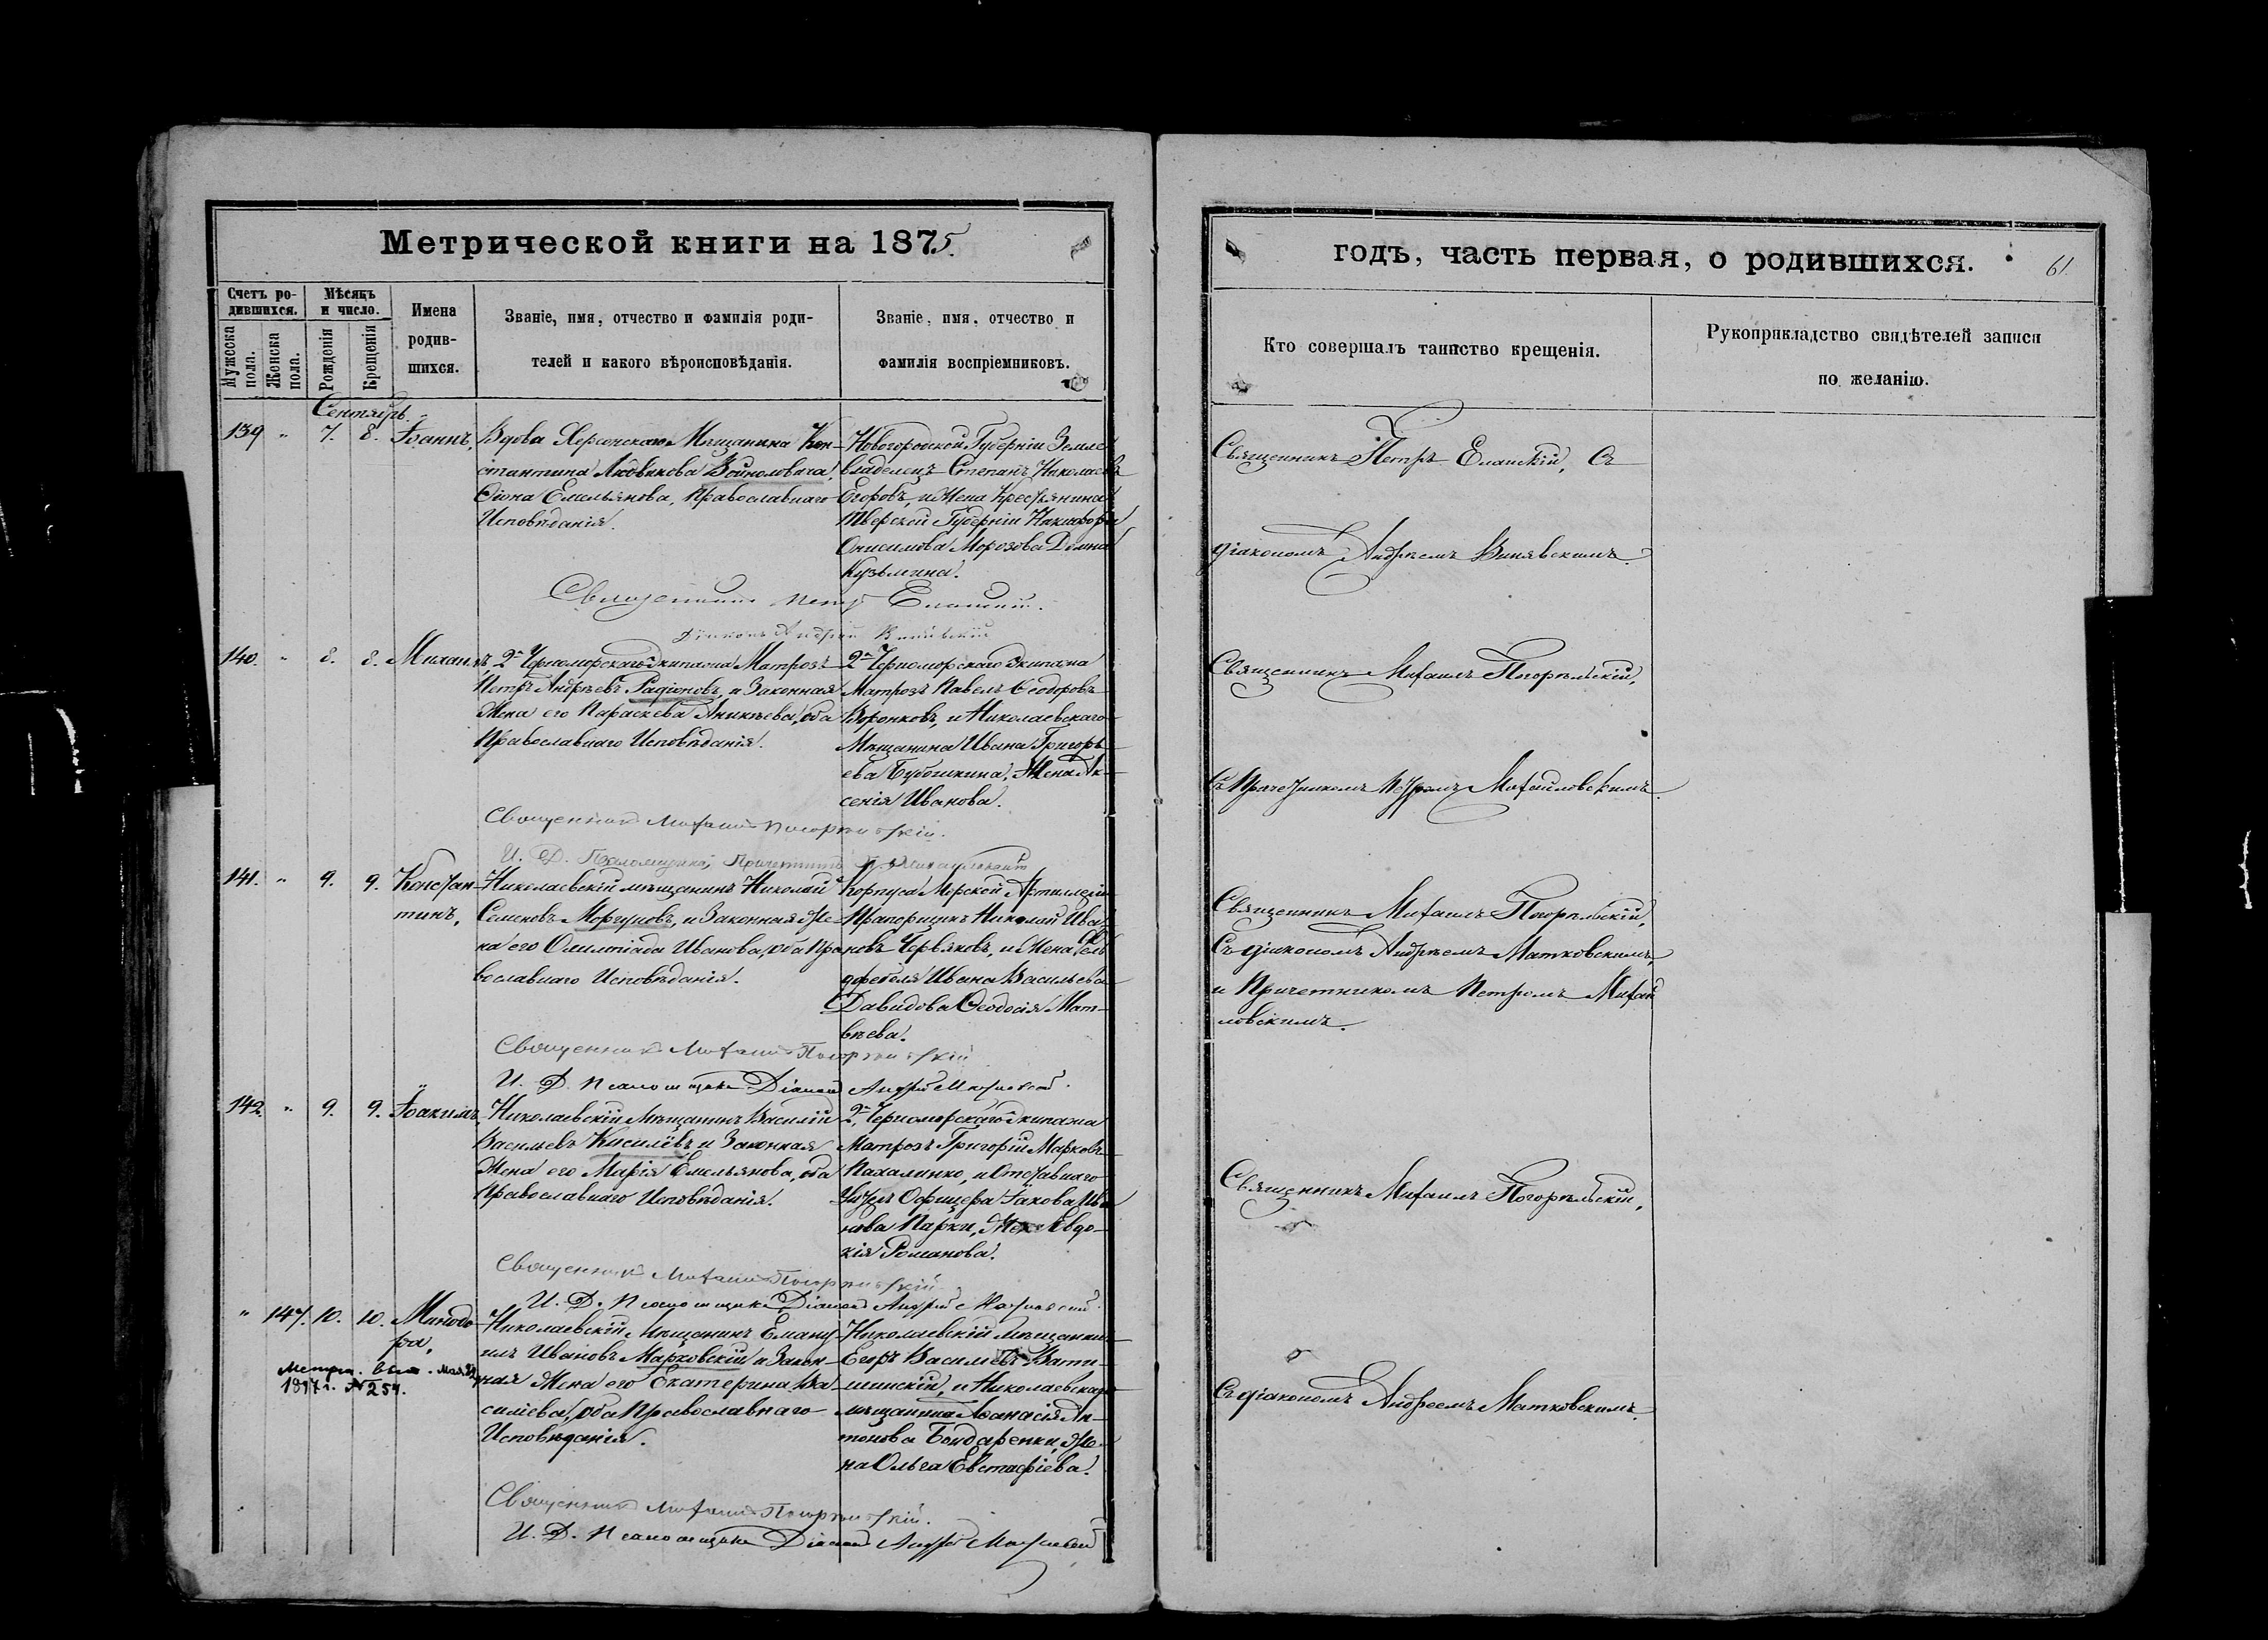 Метрической книги на 1875.
Счетъ ро-
дившихся.
Мужеска
пола.
Женска
пола.
Мѣсяцъ
и число.
Рожденія
Крещенія
Имена
родив-
шихся.
Званіе, имя, отчество и фамилія роди-
телей и какого вѣроисповѣданія.
Званіе, имя, отчество и
фамилія воспріемниковъ.
Сентябрь
139 " 7. 8. Іоаннъ,
Вдова Херсонскаго Мѣщанина Кон-
стантина Людвикова Войноловича,
Емельянова, Православнаго
Исповѣданія.
Новогородской Губерніи Земле-
владелецъ Степанъ Николаевъ
Егоровъ, и Жена Крестьянина
Тверской Губерніи Никифора
Онисимова Морозова Домна
Кузьмина.
Священникъ Петръ Еланскій.
Діаконъ Андрей Винявскій
140. " 8. 8. Михаилъ,
2го Черноморскаго Экипажа Матрозъ
Петръ Андреевъ Радіоновъ, и Законная
Жена его Параскева Аникѣева, оба
Православнаго Исповѣданія.
2го Черноморскаго Экипажа
Матрозъ Павелъ Ѳеодоровъ
Воронковъ, и Николаевскаго
Мѣщанина Ивана Григорь-
ева Жена Ак-
сенія Иванова.
Священникъ Михаилъ Погорѣльскій.
И. Д. Псаломщика, Причетникъ
141. " 9. 9. Констан-
тинъ,
Николаевскій мѣщанинъ Николай
Семеновъ Моргуновъ, и Законная Же-
на его Олимпіада Иванова, оба Пра-
вославнаго Исповѣданія.
Корпуса Морской Артиллеріи
Прапорщикъ Николай Ива-
новъ Червяковъ, и Жена Фель-
дфебеля Ивана Васильева
Давидова Ѳеодосія Мат-
вѣева.
Священникъ Михаилъ Погорѣльскій
И. Д. Псаломщика Діаконъ Андрей Матковскій.
142. " 9. 9. Іоакимъ,
Николаевскій Мѣщанинъ Василій
Васильевъ Киселёвъ и Законная
Жена его Марія Емельянова, оба
Православнаго Исповѣданія.
2го Черноморскаго Экипажа
Матрозъ Григорій Марковъ
Пахалинко, и Отставнаго
Унтеръ Офицера Іакова Ива-
нова Парки, Жена Евдо-
кія Романова.
Священникъ Михаилъ Погорѣльскій
И. Д. Псаломщика Діаконъ Андрей Матковскій.
" 147. 10. 10. Минодо-
ра,
№ 254.
Николаевскій Мѣщанинъ Еману-
илъ Ивановъ Марковскій и Закон-
ная Жена его Екатерина Ва-
силіева, оба Православнаго
Исповѣданія.
Николаевскій Мѣщанинъ
Егоръ Василіевъ
и Николаевскаго
мѣщанина Аѳанасія Ан-
тонова Бондаренки, Же-
на Ольга Евстафіева.
Священникъ Михаилъ Погорѣльскій.
И. Д. Псаломщика Діаконъ Андрей Матковскій
годъ, часть первая, о родившихся.
61.
Кто совершалъ таинство крещенія.
Рукоприкладство свидѣтелей записи
по желанію.
Священникъ Петръ Еланскій, Съ
діакономъ Андреемъ Винявскимъ.
Священникъ Михаилъ Погорѣльскій,
Съ Причетникомъ Петромъ Михайловскимъ.
Священникъ Михаилъ Погорѣльскій,
Съ діакономъ Андреемъ Матковскимъ,
и Причетникомъ Петромъ Михай
ловскимъ.
Священникъ Михаилъ Погорѣльскій,
Съ діакономъ Андреемъ Матковскимъ.